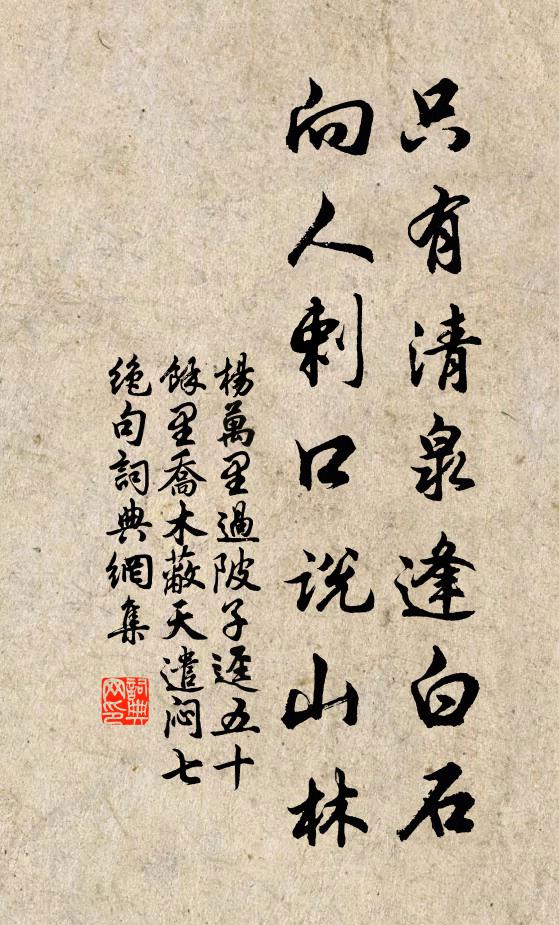 只有清泉逢白石
向人刺口说山林
楊萬里過陂子逕五十
餘里喬木蔽天遣闷七
绝句詞典網集
詞典
网印